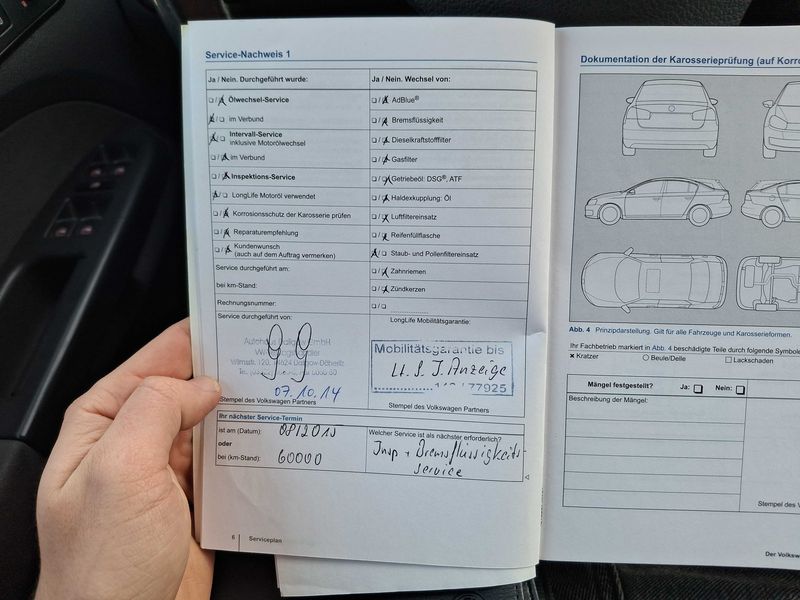 Service-Nachweis 1
Ja / Nein. Durchgeführt wurde:
Ja / Nein. Wechsel von:
Ölwechsel-Service
AdBlue®
im Verbund
Bremsflüssigkeit
Intervall-Service
inklusive Motorölwechsel
Dieselkraftstofffilter
im Verbund
Gasfilter
Inspektions-Service
Getriebeöl: DSG®, ATF
LongLife Motoröl verwendet
Haldexkupplung: Öl
Korrosionsschutz der Karosserie prüfen
Luftfiltereinsatz
Reparaturempfehlung
Reifenfüllflasche
Kundenwunsch
(auch auf dem Auftrag vermerken)
Staub- und Pollenfiltereinsatz
Service durchgeführt am:
Zahnriemen
bei km-Stand:
Zündkerzen
Rechnungsnummer:
Service durchgeführt von:
LongLife Mobilitätsgarantie:
GmbH
14624 Dallgow-Döberitz
07.10.14
Mobilitätsgarantie bis
lt. S. I. Anzeige
77925
Stempel des Volkswagen Partners
Stempel des Volkswagen Partners
Ihr nächster Service-Termin
ist am (Datum): 0812015
oder
bei (km-Stand): 60000
Welcher Service ist als nächster erforderlich?
Insp + Bremsflüssigkeits-
service
6 Serviceplan
Dokumentation der Karosserieprüfung (auf Korro
Abb. 4 Prinzipdarstellung. Gilt für alle Fahrzeuge und Karosserieformen.
Ihr Fachbetrieb markiert in Abb. 4 beschädigte Teile durch folgende Symbole
Kratzer
Beule/Delle
Lackschaden
Mängel festgestellt?
Ja:
Nein:
Beschreibung der Mängel:
Stempel des Vol
Der Volksw